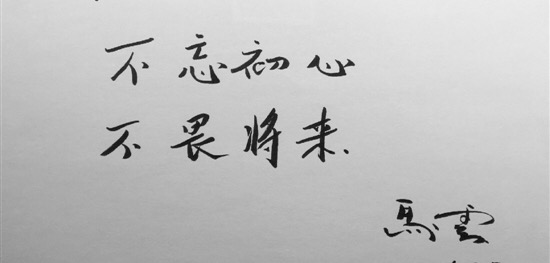 不忘初心
不畏将来.
馬雲